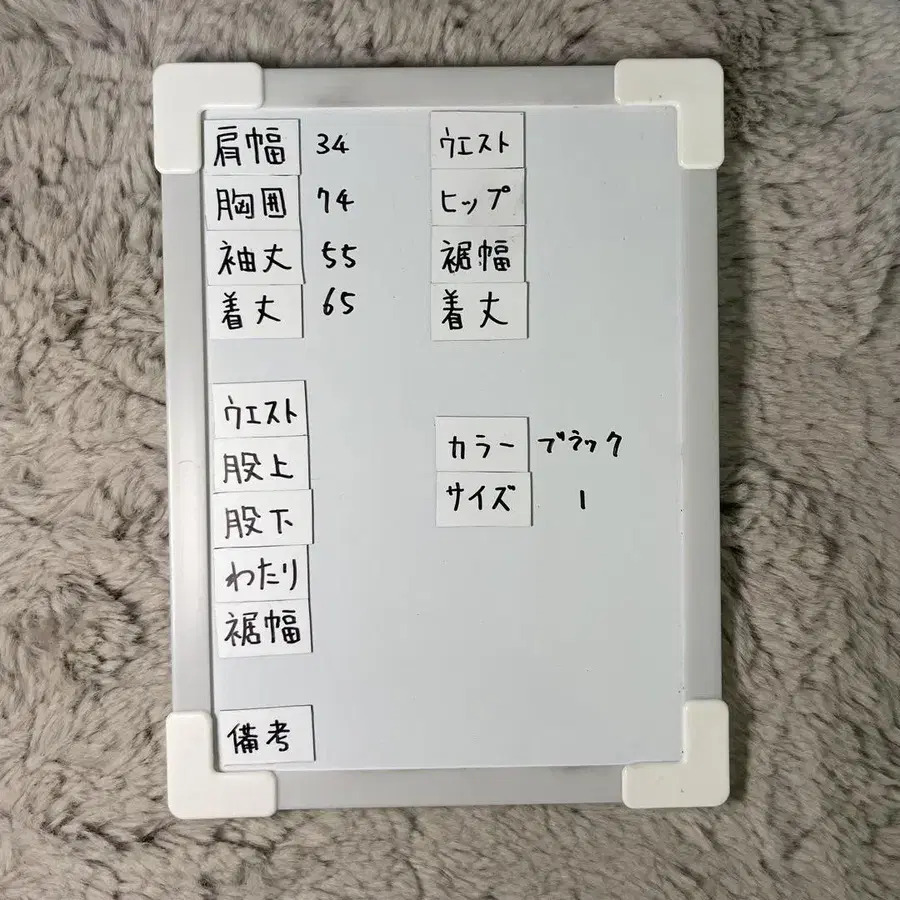 肩幅 34
胸囲 74
袖丈 55
着丈 65
ウエスト
ヒップ
裾幅
着丈
ウエスト
股上
股下
わたり
裾幅
カラー ブラック
サイズ 1
備考